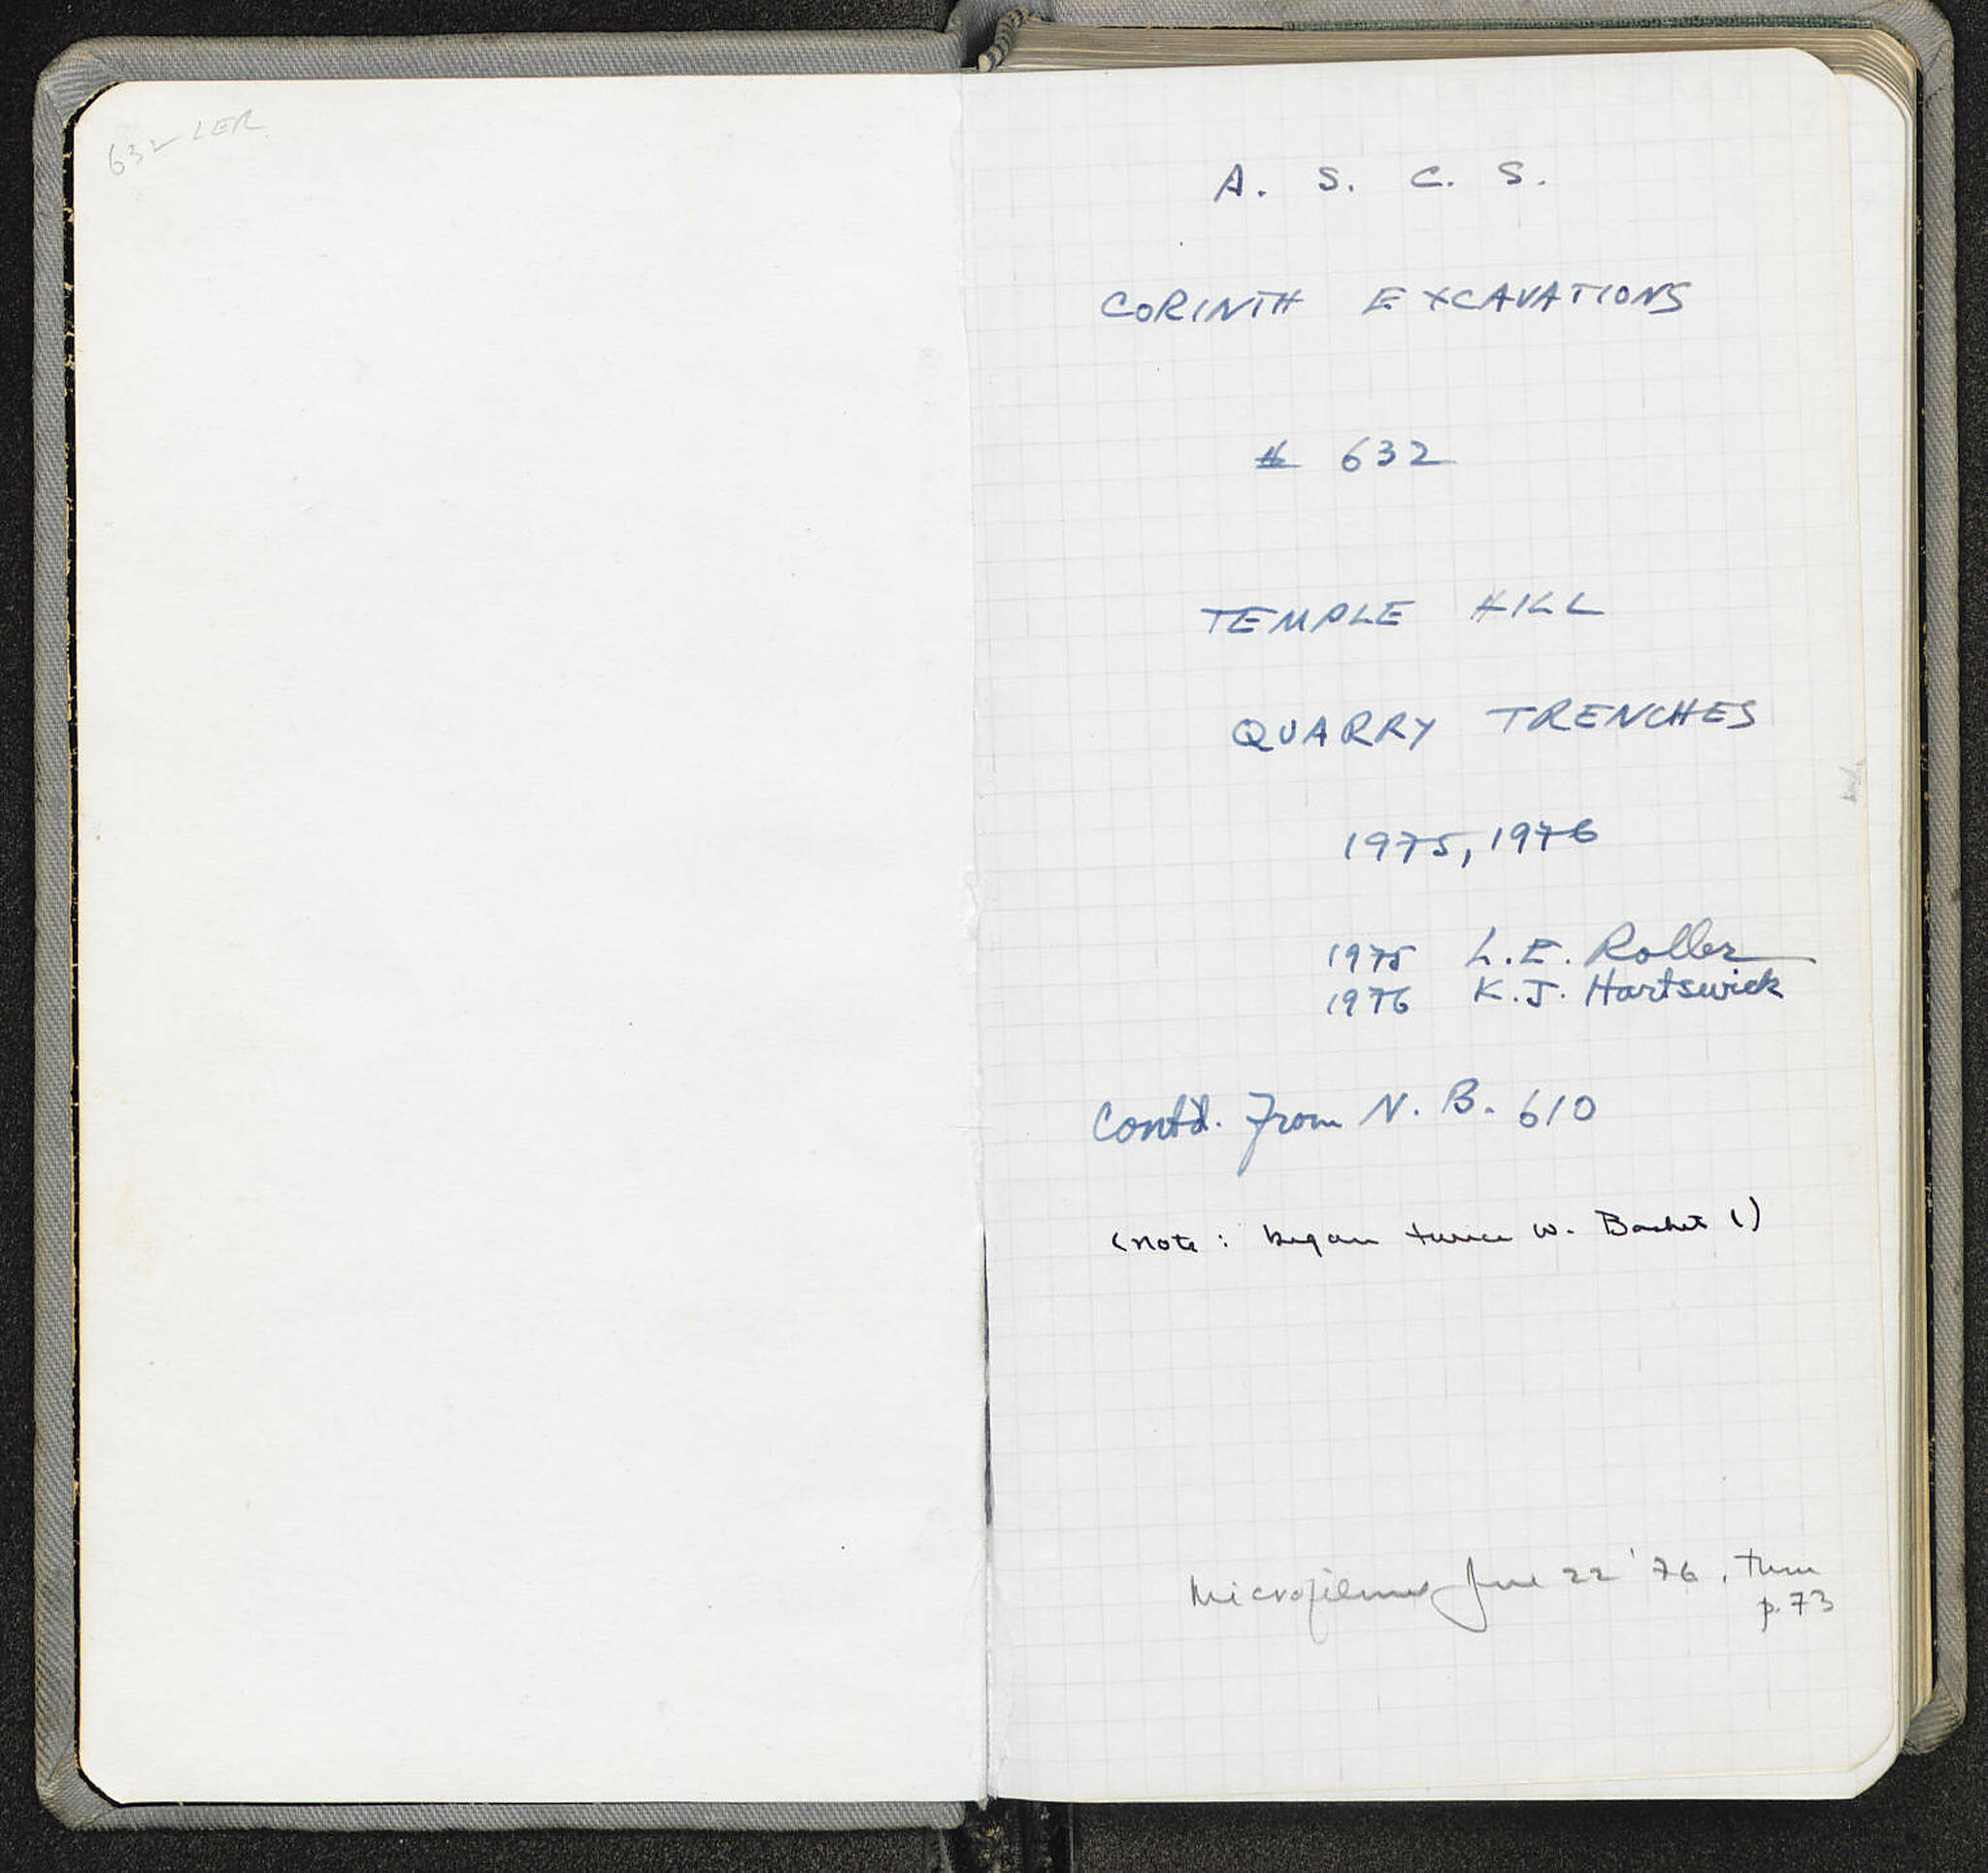 632 LER
A. S. C. S.
CORINTH EXCAVATIONS
# 632
TEMPLE HILL
QUARRY TRENCHES
1975, 1976
1975 L.E. Roller
1976 K.J. Hartswick
Contd. from N. B. 610
(note: began twice w. Basket 1)
Microfilmed June 22 '76, thru
p. 73